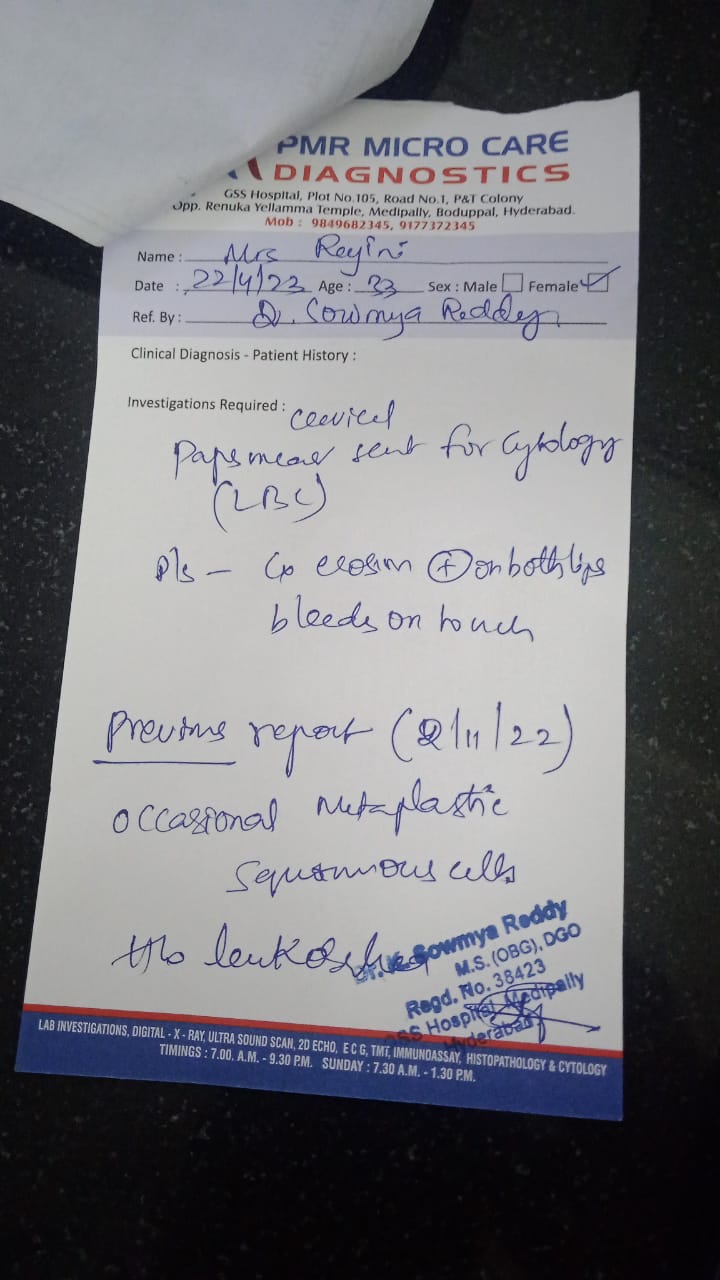 PMR MICRO CARE
DIAGNOSTICS
GSS Hospital, Plot No.105, Road No.1, P&T Colony
Opp. Renuka Yellamma Temple, Medipally, Boduppal, Hyderabad.
Mob : 9849682345, 9177372345
Name : Mrs Reyini
Date : 22/4/23 Age : 33 Sex : Male Female ✓
Ref. By : Dr. Sowmya Reddy
Clinical Diagnosis - Patient History :
Investigations Required : cervical
Papsmear sent for cytology
(LBC)
P/s - Cx erosion (+) on both lips
bleeds on touch
Previous report (2/11/22)
occasional metaplastic
squamous cells
H/o leukorrhea
Dr. K. Sowmya Reddy
M.S. (OBG), DGO
Regd. No. 38423
GSS Hospital, Medipally
Hyderabad
LAB INVESTIGATIONS, DIGITAL - X - RAY, ULTRA SOUND SCAN, 2D ECHO, E C G, TMT, IMMUNOASSAY, HISTOPATHOLOGY & CYTOLOGY
TIMINGS : 7.00. A.M. - 9.30 P.M. SUNDAY : 7.30 A.M. - 1.30 P.M.